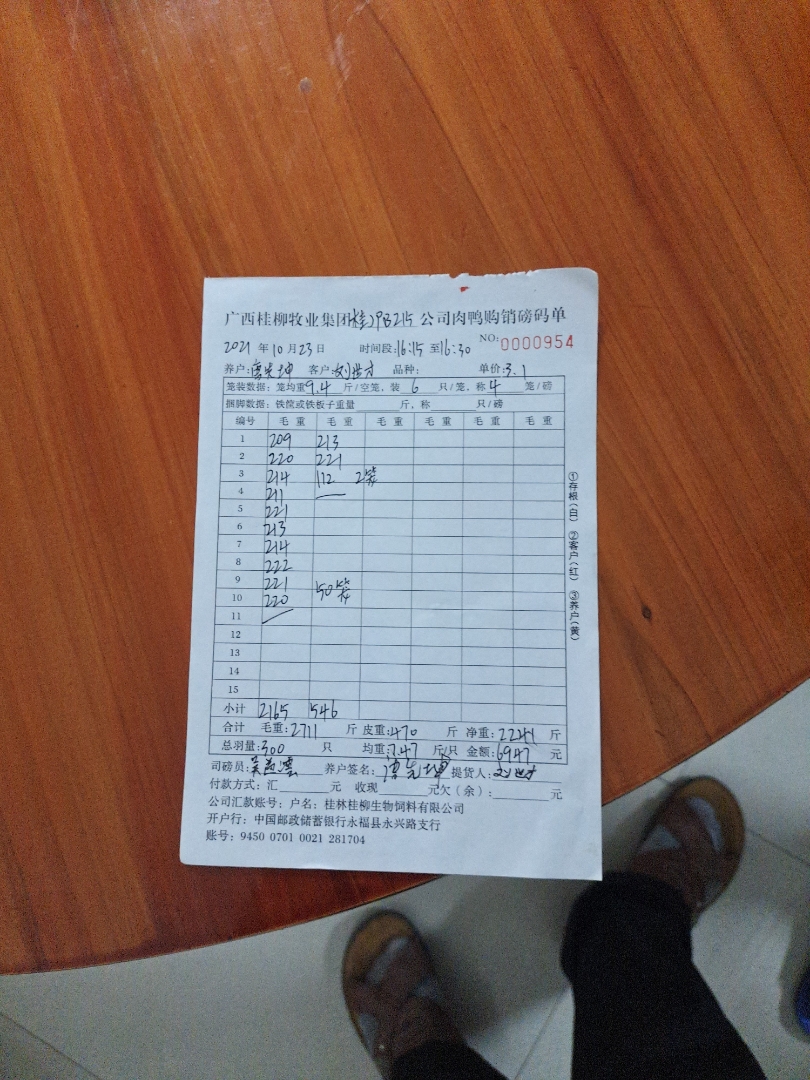 广西桂柳牧业集团(桂)PB215公司肉鸭购销磅码单
2021年10月23日 时间段:16:15至16:30 NO:0000954
养户: 客户:刘世才 品种: 单价:3.1
笼装数据:笼均重9.4斤/空笼,装6只/笼,称4笼/磅
捆脚数据:铁筐或铁板子重量 斤,称 只/磅
编号 毛重 毛重 毛重 毛重 毛重 毛重
1 209 213
2 220 221
3 214 112 2笼
4 211
5 221
6 213
7 214
8 222
9 221 50笼
10 220
11
12
13
14
15
小计 2165 546
合计 毛重:2711斤 皮重:470斤 净重:2241斤
总羽量:300只 均重:7.47斤/只 金额:6947元
司磅员: 养户签名: 提货人:刘世才
付款方式:汇 元 收现 元欠(余): 元
公司汇款账号:户名:桂林桂柳生物饲料有限公司
开户行:中国邮政储蓄银行永福县永兴路支行
账号:9450 0701 0021 281704
①存根(白) ②客户(红) ③养户(黄)